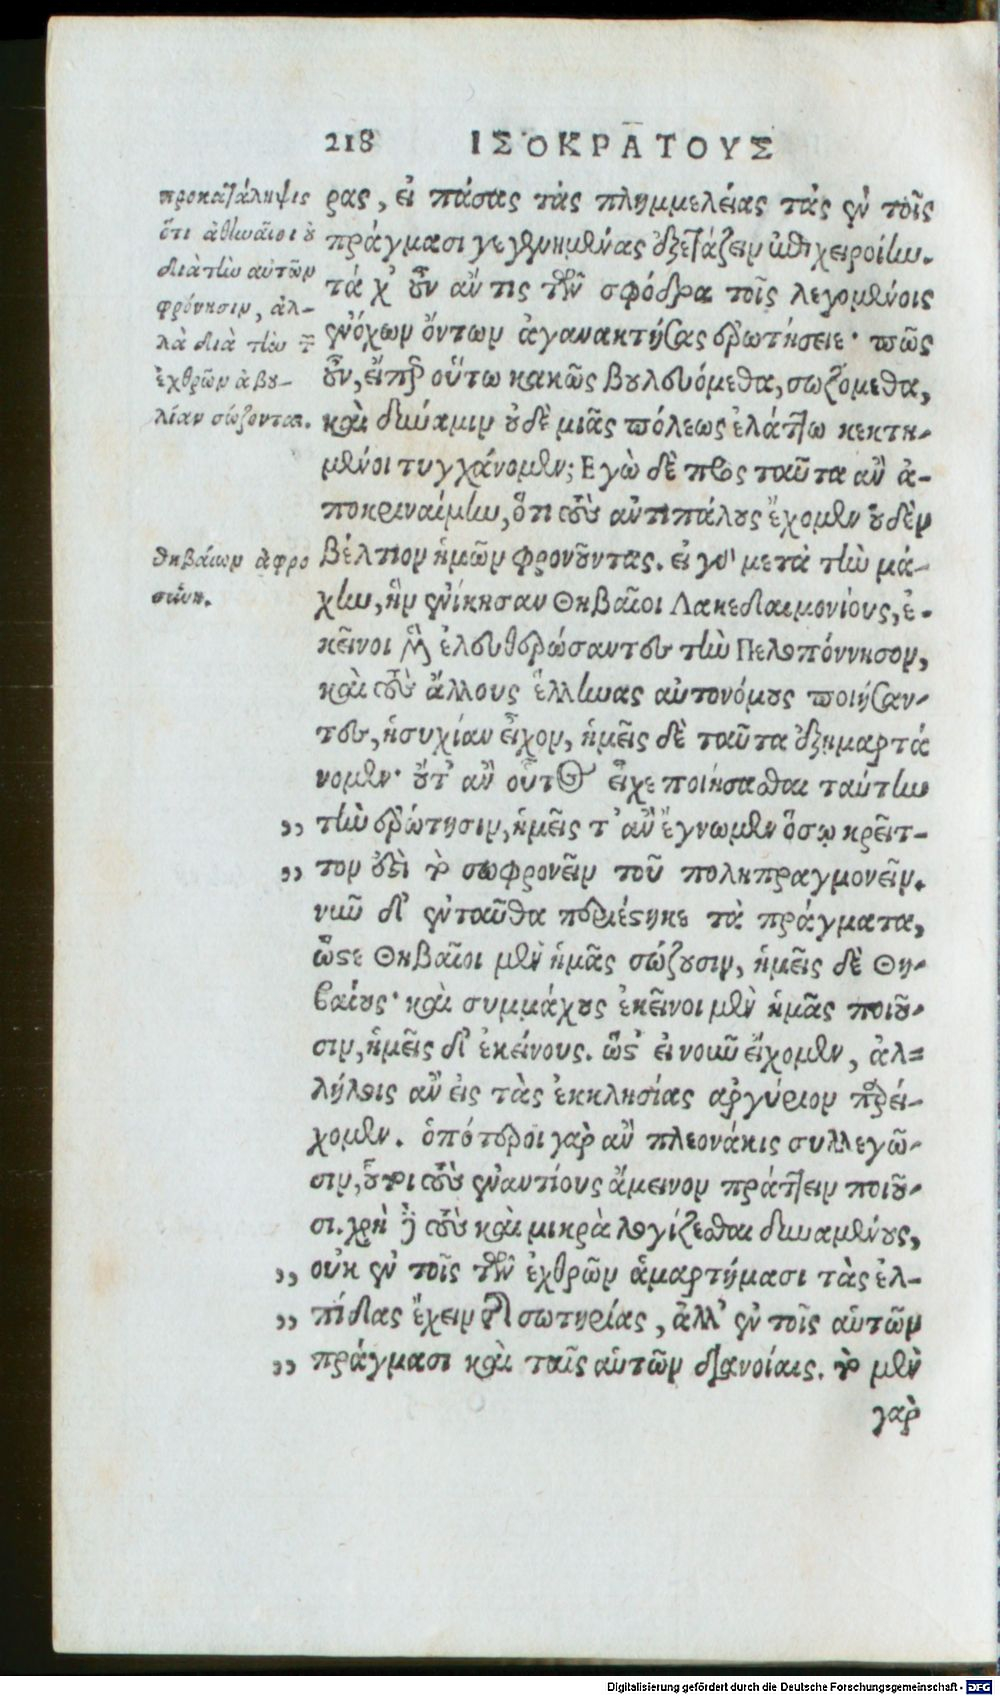 218 ΙΣΟΚΡΑΤΟΥΣ
προκατάληψις
ὅτι ἀθηναῖοι οὐ
διὰ τὴν αὐτῶν
φρόνησιν, ἀλ-
λὰ διὰ τὴν τῶν
ἐχθρῶν ἀβου-
λίαν σώζονται.
θηβαίων ἀφρο
σύνη.
ρας, εἰ πάσας τὰς πλημμελείας τὰς ἐν τοῖς
πράγμασι γεγενημένας ἐξετάζειν ἐπιχειροίην.
τάχ' οὖν ἄν τις τῶν σφόδρα τοῖς λεγομένοις
ἐνόχων ὄντων ἀγανακτήσας ἐρωτήσειε· πῶς
οὖν, εἴπερ οὕτω κακῶς βουλευόμεθα, σωζόμεθα,
καὶ δύναμιν οὐδὲ μιᾶς πόλεως ἐλάττω κεκτη-
μένοι τυγχάνομεν; Εγὼ δὲ πρὸς ταῦτα ἂν ἀ-
ποκριναίμην, ὅτι τοὺς ἀντιπάλους ἔχομεν οὐδὲν
βέλτιον ἡμῶν φρονοῦντας. εἰ γὰρ μετὰ τὴν μά-
χην, ἣν ἐνίκησαν Θηβαῖοι Λακεδαιμονίους, ἐ-
κεῖνοι μὲν ἐλευθερώσαντες τὴν Πελοπόννησον,
καὶ τοὺς ἄλλους ἕλληνας αὐτονόμους ποιήσαν-
τες, ἡσυχίαν εἶχον, ἡμεῖς δὲ ταῦτα ἐξημαρτά
νομεν· οὔτ' ἂν οὗτος εἶχε ποιήσασθαι ταύτην
„ τὴν ἐρώτησιν, ἡμεῖς τ' ἂν ἔγνωμεν ὅσῳ κρεῖτ-
„ τον ἐστὶ τὸ σωφρονεῖν τοῦ πολυπραγμονεῖν.
νῦν δ' ἐνταῦθα περιέστηκε τὰ πράγματα,
ὥστε Θηβαῖοι μὲν ἡμᾶς σώζουσιν, ἡμεῖς δὲ Θη-
βαίους· καὶ συμμάχους ἐκεῖνοι μὲν ἡμᾶς ποιοῦ-
σιν, ἡμεῖς δ' ἐκείνους. ὥστ' εἰ νοῦν εἴχομεν, ἀλ-
λήλοις ἂν εἰς τὰς ἐκκλησίας ἀργύριον παρεί-
χομεν. ὁπότεροι γὰρ ἂν πλεονάκις συλλεγῶ-
σιν, οὗτοι τοὺς ἐναντίους ἄμεινον πράττειν ποιοῦ-
σι. χρὴ δὲ τοὺς καὶ μικρὰ λογίζεσθαι δυναμένους,
„ οὐκ ἐν τοῖς τῶν ἐχθρῶν ἁμαρτήμασι τὰς ἐλ-
„ πίδας ἔχειν τῆς σωτηρίας, ἀλλ' ἐν τοῖς αὑτῶν
„ πράγμασι καὶ ταῖς αὑτῶν διανοίαις. τὸ μὲν
γὰρ
Digitalisierung gefördert durch die Deutsche Forschungsgemeinschaft - DFG